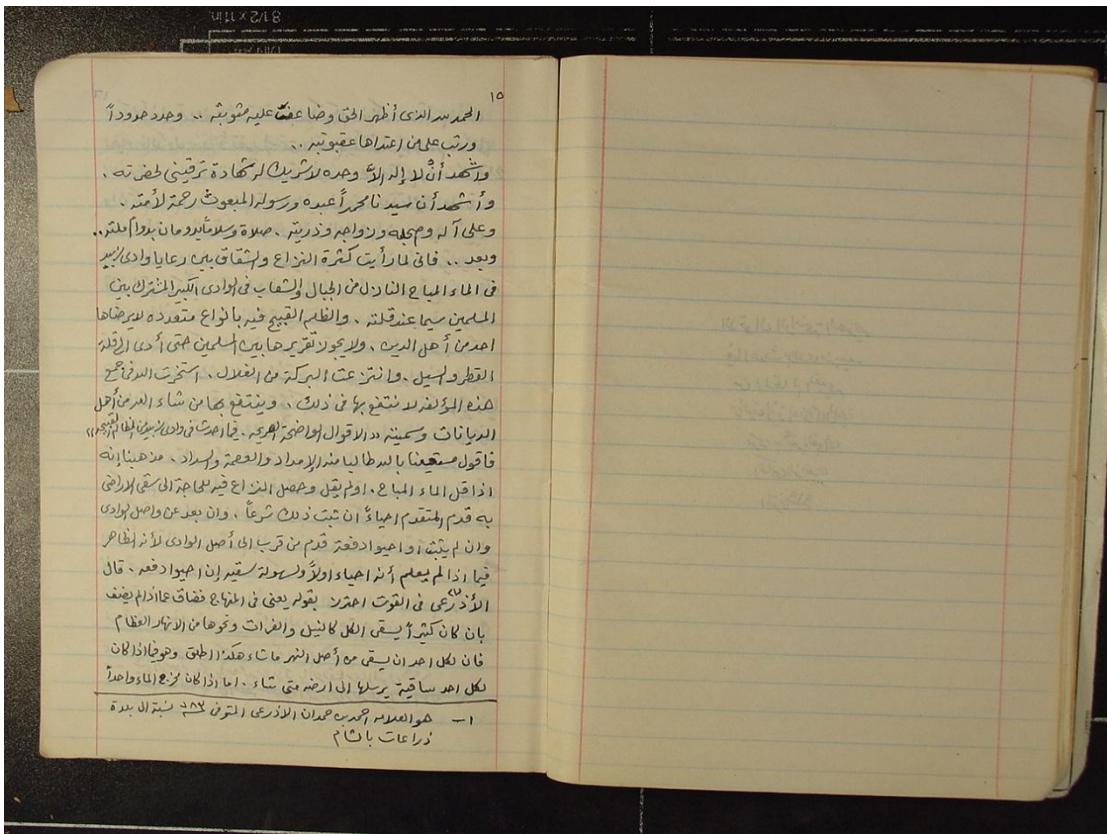 8 1/2 x 11 in
١٥
الحمد لله الذى أظهر الحق وضاعف عليه مثوبته .. وحدد حدوداً
ورتب على من اعتداها عقبوته ..
واشهد أنْ لا إله الاَّ وحده لا شريك له شهادة ترقينى لحضرته .
وأشهد أن سيدنا محمداً عبده ورسوله المبعوث رحمة لأمته .
وعلى آله وصحبه وازواجه وذريته . صلاة وسلاماً يدومان بدوام ملته ..
وبعد .. فانى لما رأيت كثرة النزاع والشقاق بين رعايا وادى زبيد
فى الماء المباح النازل من الجبال والشعاب فى الوادى الكبير المشترك بين
المسلمين سيما عند قلته . والظلم القبيح فيه بانواع متعدده لا يرضاها
احد من أهل الدين . ولا يجوز تقريرها بين المسلمين حتى أدى الى قلة
القطر والسيل . وانتزعت البركة من الغلال . استخرت الله فى جمع
هذه المؤلفه لانتفع بها فى ذلك . وينتفع بها من شاء الله من أهل
الديانات وسميته (( الاقوال الواضحة الصريحه . فيما احدث فى وادى زبيد من المظالم القبيحه ))
فاقول مستعينا بالله طالبا منه الإمداد والعصمة والسداد . مذهبنا إنه
اذا قل الماء المباح . او لم يقل وحصل النزاع فيه للحاجة الى سقى الاراضى
به قدم المتقدم احياءً ان ثبت ذلك شرعاً . وان بعد عن اصل الوادى
وان لم يثبت او احيوا دفعة قدم من قرب الى أصل الوادى لأنه الظاهر
فيما اذا لم يعلم أنه احياء اولاً ولسهولة سقيه إن احيوا دفعه . قال
الأذرعى (١) فى القوت احترز بقوله يعنى فى المنهاج فضاق عما اذا لم يضف
بان كان كثيراً يسقى الكل كالنيل والفرات ونحوها من الانهار العظام
فان لكل احد ان يسقى من أصل النهر ما شاء هكذا اطلق وهو فيما اذا كان
لكل احد ساقية يرسلها الى ارضه متى شاء . اما اذا كان مخرج الماء واحداً
١ - هو العلامه احمد بن حمدان الاذرعى المتوفى ٧٨٣ نسبة الى بلدة
ذراعات بالشام